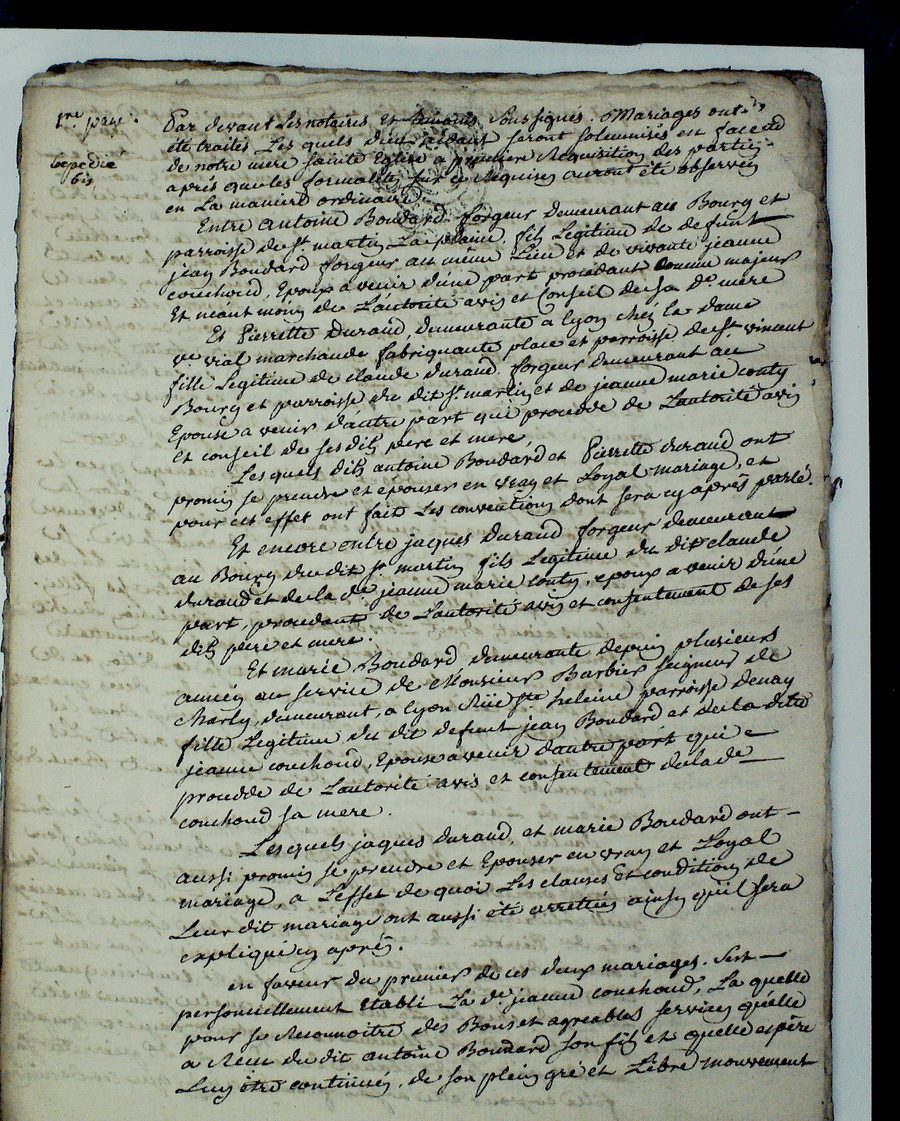 1re page.
Expediée
bis
Par devant Les notaires et temoins soussignés. Mariages ont
été traités Les quels dieu aidant seront solemnisés en face de
de notre mere sainte Eglise a premiere Requisition des parties
apres que les formalités sur ce Requises auront été observées
en La maniere ordinaire.
Entre antoine Boudard forgeur demeurant au Bourg et
parroisse de st. martin La plaine, fils Legitime de defunt
jean Boudard forgeur au meme Lieu et de vivante jeanne
couchoud, Epoux a venir d'une part procedant comme majeur
Et neant moins de L'autorité avis et Conseil de sa de. mere
Et Pierrette Duraud, demeurante a Lyon chéz la dame
ve. vial marchande fabriquante place et parroisse de st. vincent
fille Legitime de claude duraud forgeur demeurant au
Bourg et parroisse du dit st. martin et de jeanne marie conty
Epouse a venir d'autre part qui procede de L'autorité avis
et conseil de ses dits pere et mere,
Les quels dits antoine Boudard et Pierrette duraud ont
promis se prendre et epouser en vray et Loyal mariage, et
pour cet effet ont fait Les conventions dont sera cy apres parlé.
Et encore entre jaques duraud forgeur demeurant
au Bourg du dit st. martin fils Legitime du dit claude
duraud et de la de. jeanne marie conty, epoux a venir d'une
part, procedant de L'autorité avis et consentement de ses
dits pere et mere.
Et marie Boudard demeurante depuis plusieurs
années au service de Monsieur Barbier seigneur de
Charly, demeurant, a Lyon Rüe ste. heleine parroisse denay
fille Legitime du dit defunt jean Boudard et de La ditte
jeanne couchoud, Epouse a venir d'autre part qui
procede de L'autorité avis et consentement de la de.
couchoud sa mere.
Les quels jaques duraud, et marie Boudard ont
aussi promis se prendre et Epouser en vray et Loyal
mariage, a L'effet de quoi Les clauses et conditions de
Leur dit mariage ont aussi été arretées ainsy qu'il sera
expliqué cy aprés.
en faveur du premier de ces deux mariages. s'est
personnellement Etabli La de. jeanne couchoud, La quelle
pour se Reconnoitre des Bons et agreables services quelle
a Recu du dit antoine Boudard son fils et quelle espère
Luy être continués, de son plein gré et Libre mouvement